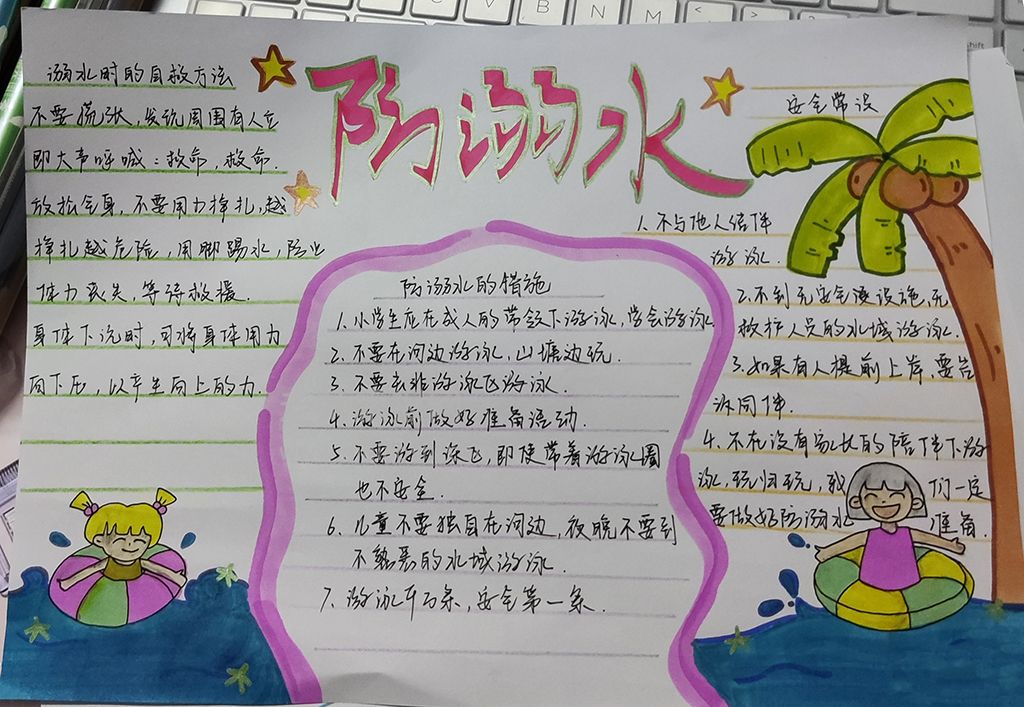 防溺水
溺水时的自救方法
不要慌张，发现周围有人立
即大声呼喊：救命，救命.
放松全身，不要用力挣扎，越
挣扎越危险，用脚踢水，防止
体力丧失，等待救援.
身体下沉时，可将身体用力
向下压，以产生向上的力.
防溺水的措施
1.小学生应在成人的带领下游泳，学会游泳.
2.不要在河边游泳，山塘边玩.
3.不要去非游泳区游泳.
4.游泳前做好准备活动.
5.不要游到深区，即使带着游泳圈
也不安全.
6.儿童不要独自在河边，夜晚不要到
不熟悉的水域游泳.
7.游泳千万条，安全第一条.
安全常设
1.不与他人结伴
游泳.
2.不到无安全设施，无
救护人员的水域游泳.
3.如果有人提前上岸，要告
诉同伴.
4.不在没有家长的陪伴下游
泳，玩归玩，我们一定
要做好防溺水准备.
V B N M
shift